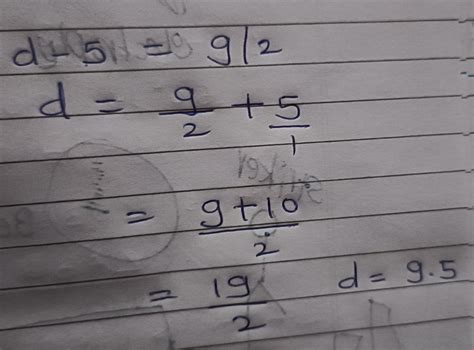 d - 5 = 9/2
d = 9/2 + 5/1
= 9+10/2
= 19/2 d = 9.5